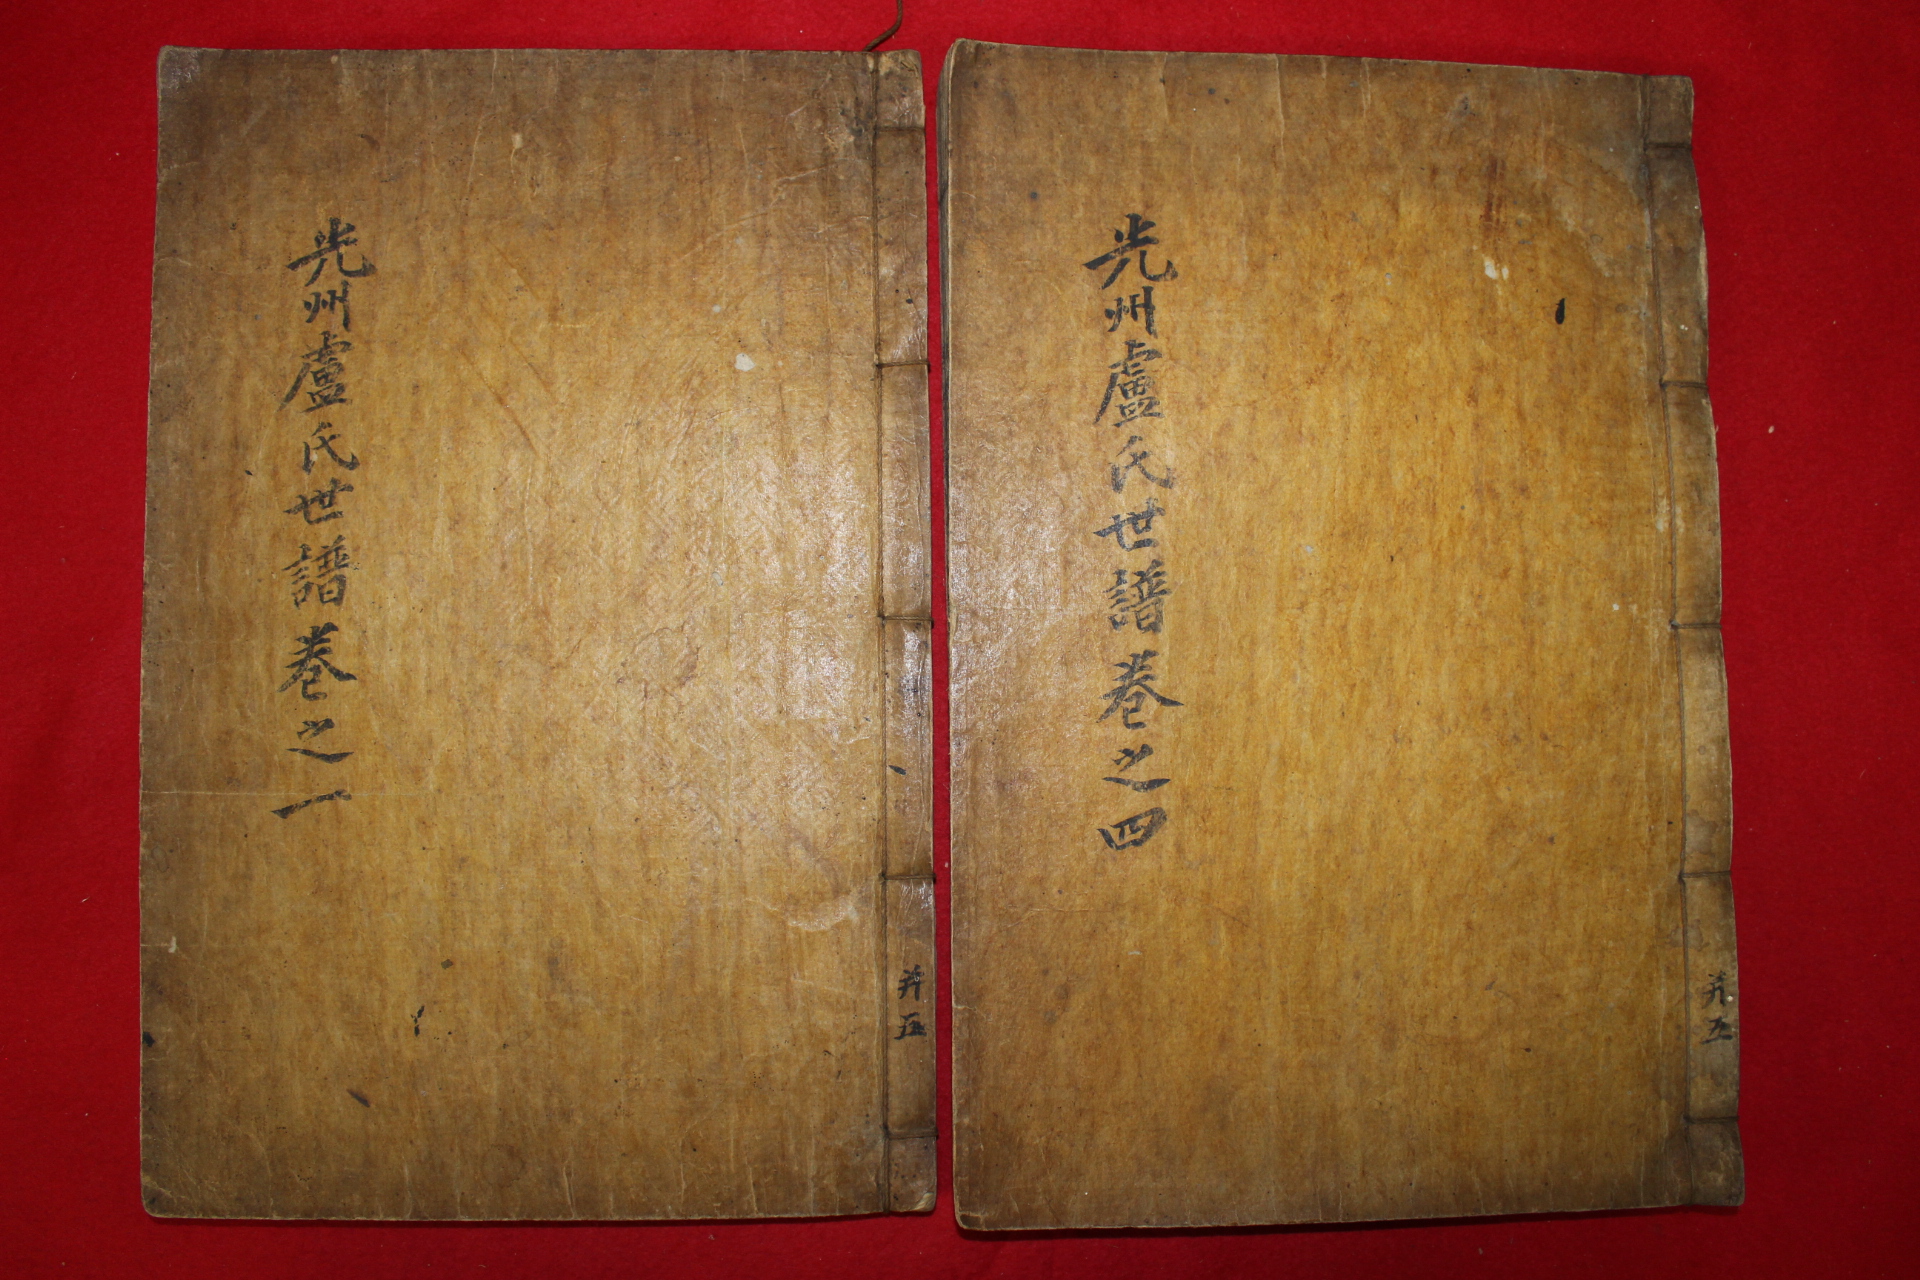 光州盧氏世譜卷之一
幷五
光州盧氏世譜卷之四
幷五